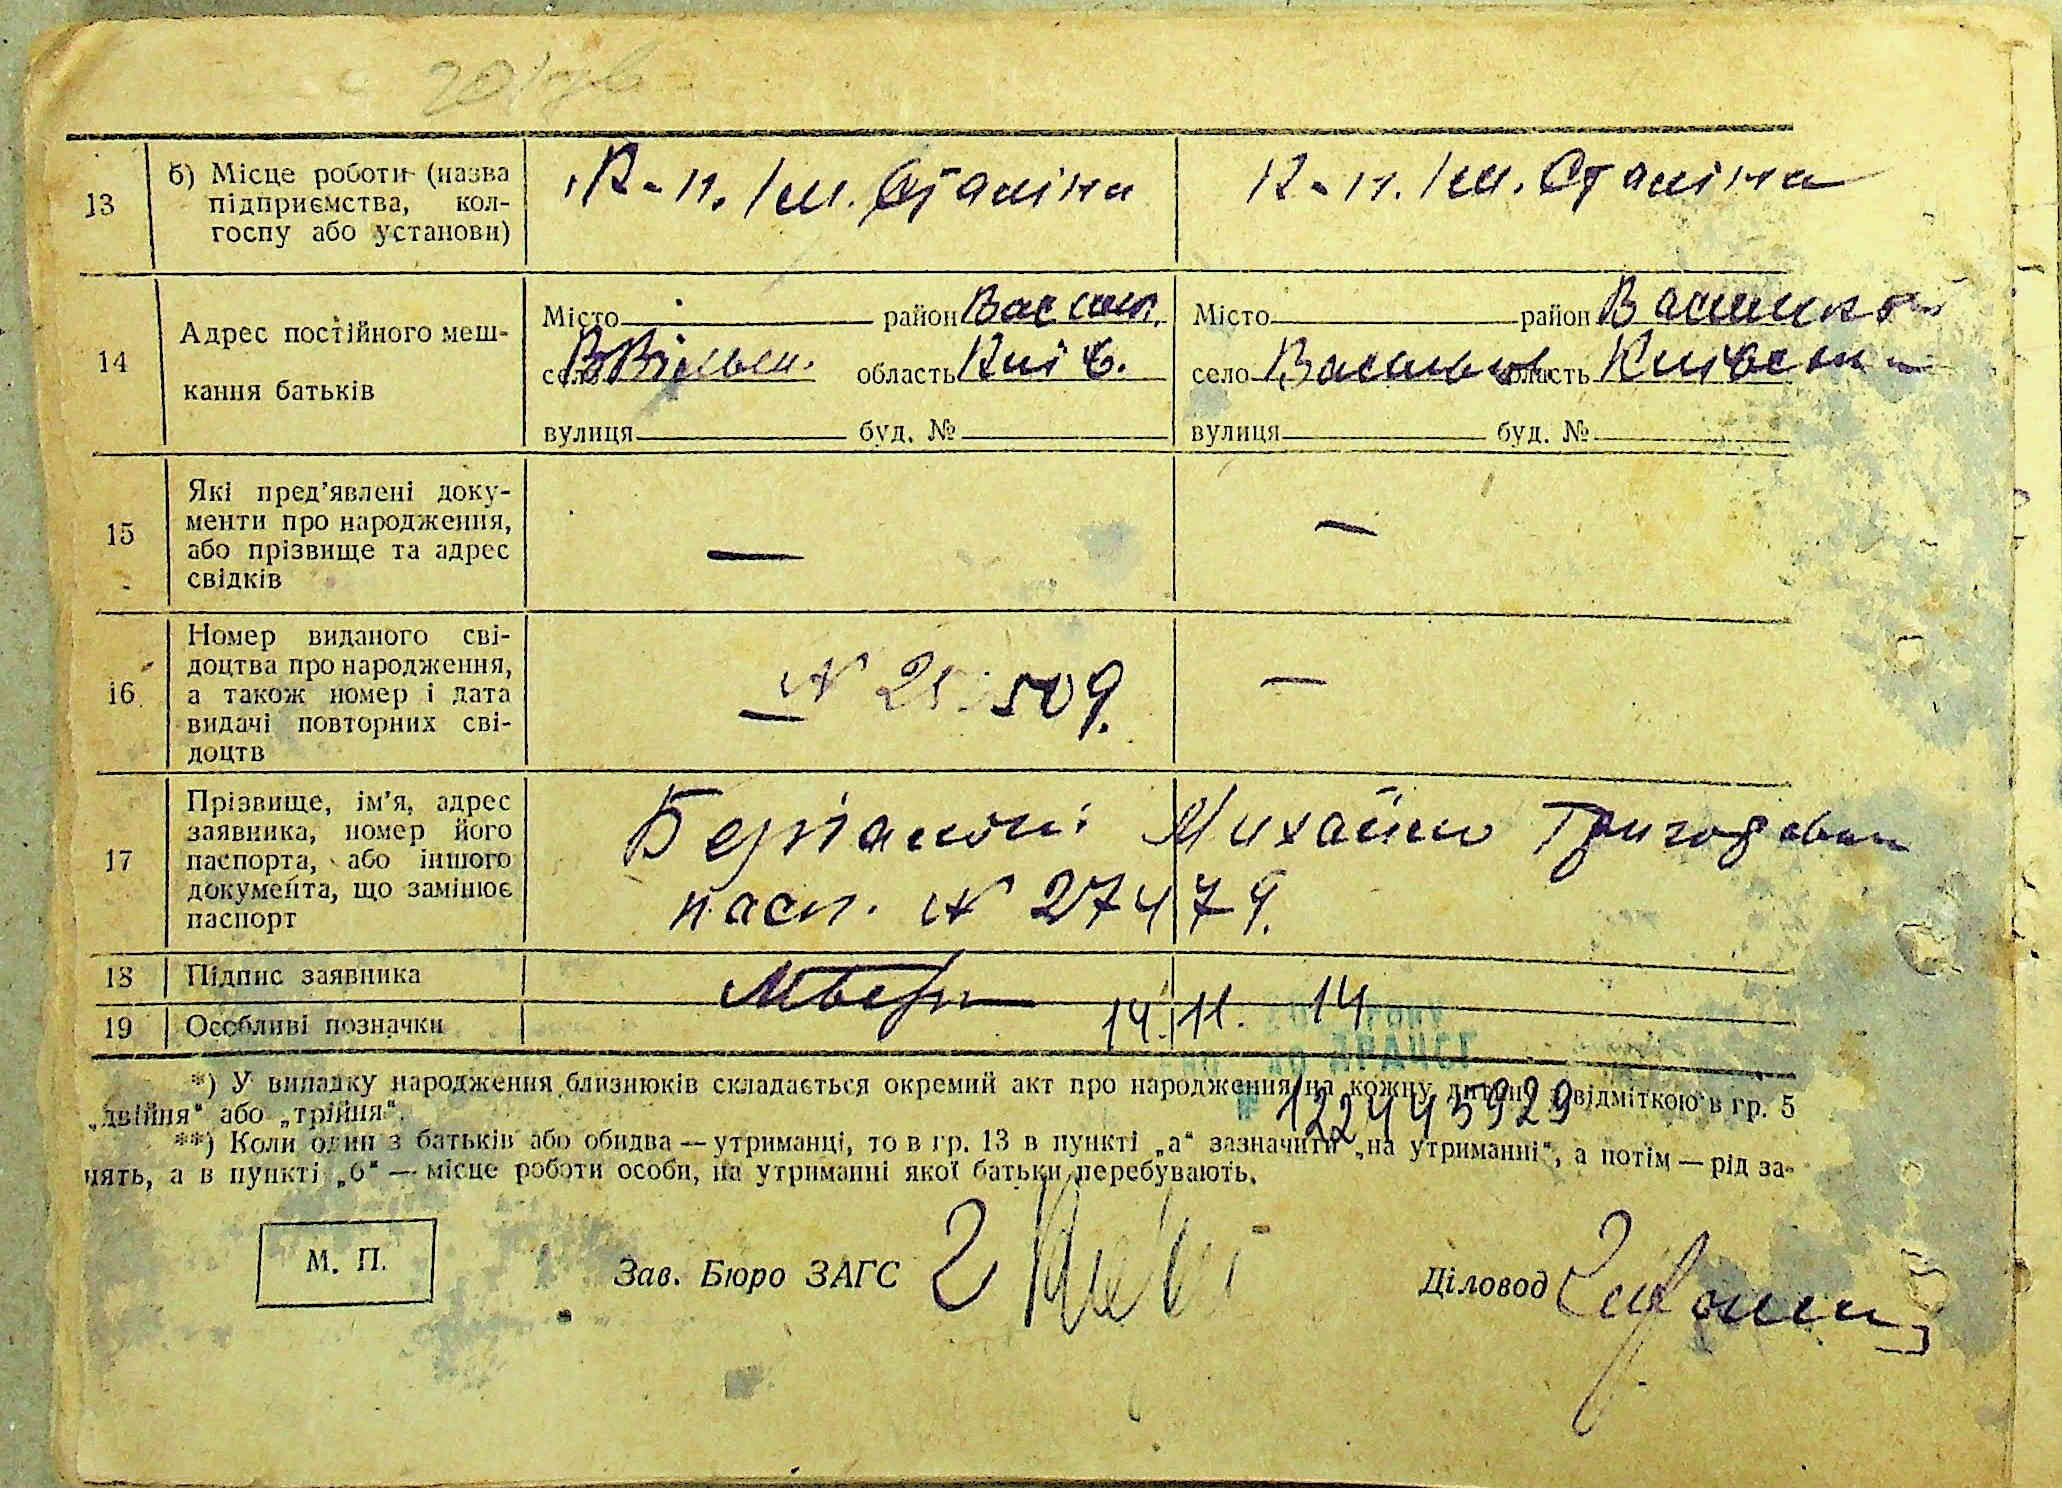 13
б) Місце роботи (назва
підприємства, кол-
госпу або установи)
К-п. Ім. Сталіна
К-п. Ім. Сталіна
14
Адрес постійного меш-
кання батьків
Місто район
село область Київ.
вулиця буд. №
Місто район
село область
вулиця буд. №
15
Які пред’явлені доку-
менти про народження,
або прізвище та адрес
свідків
—
—
16
Номер виданого сві-
доцтва про народження,
а також номер і дата
видачі повторних сві-
доцтв
№ 509.
—
17
Прізвище, ім’я, адрес
заявника, номер його
паспорта, або іншого
документа, що замінює
паспорт
Михайло
пасп. №
18
Підпис заявника
19
Особливі позначки
14. 11. 14
року
ДРАЦСГ
№ 122443929
*) У випадку народження близнюків складається окремий акт про народження на кожну дитину з відміткою в гр. 5
„двійня“ або „трійня“.
**) Коли один з батьків або обидва — утриманці, то в гр. 13 в пункті „а“ зазначити „на утриманні“, а потім — рід за-
нять, а в пункті „б“ — місце роботи особи, на утриманні якої батьки перебувають.
М. П.
Зав. Бюро ЗАГС
Діловод